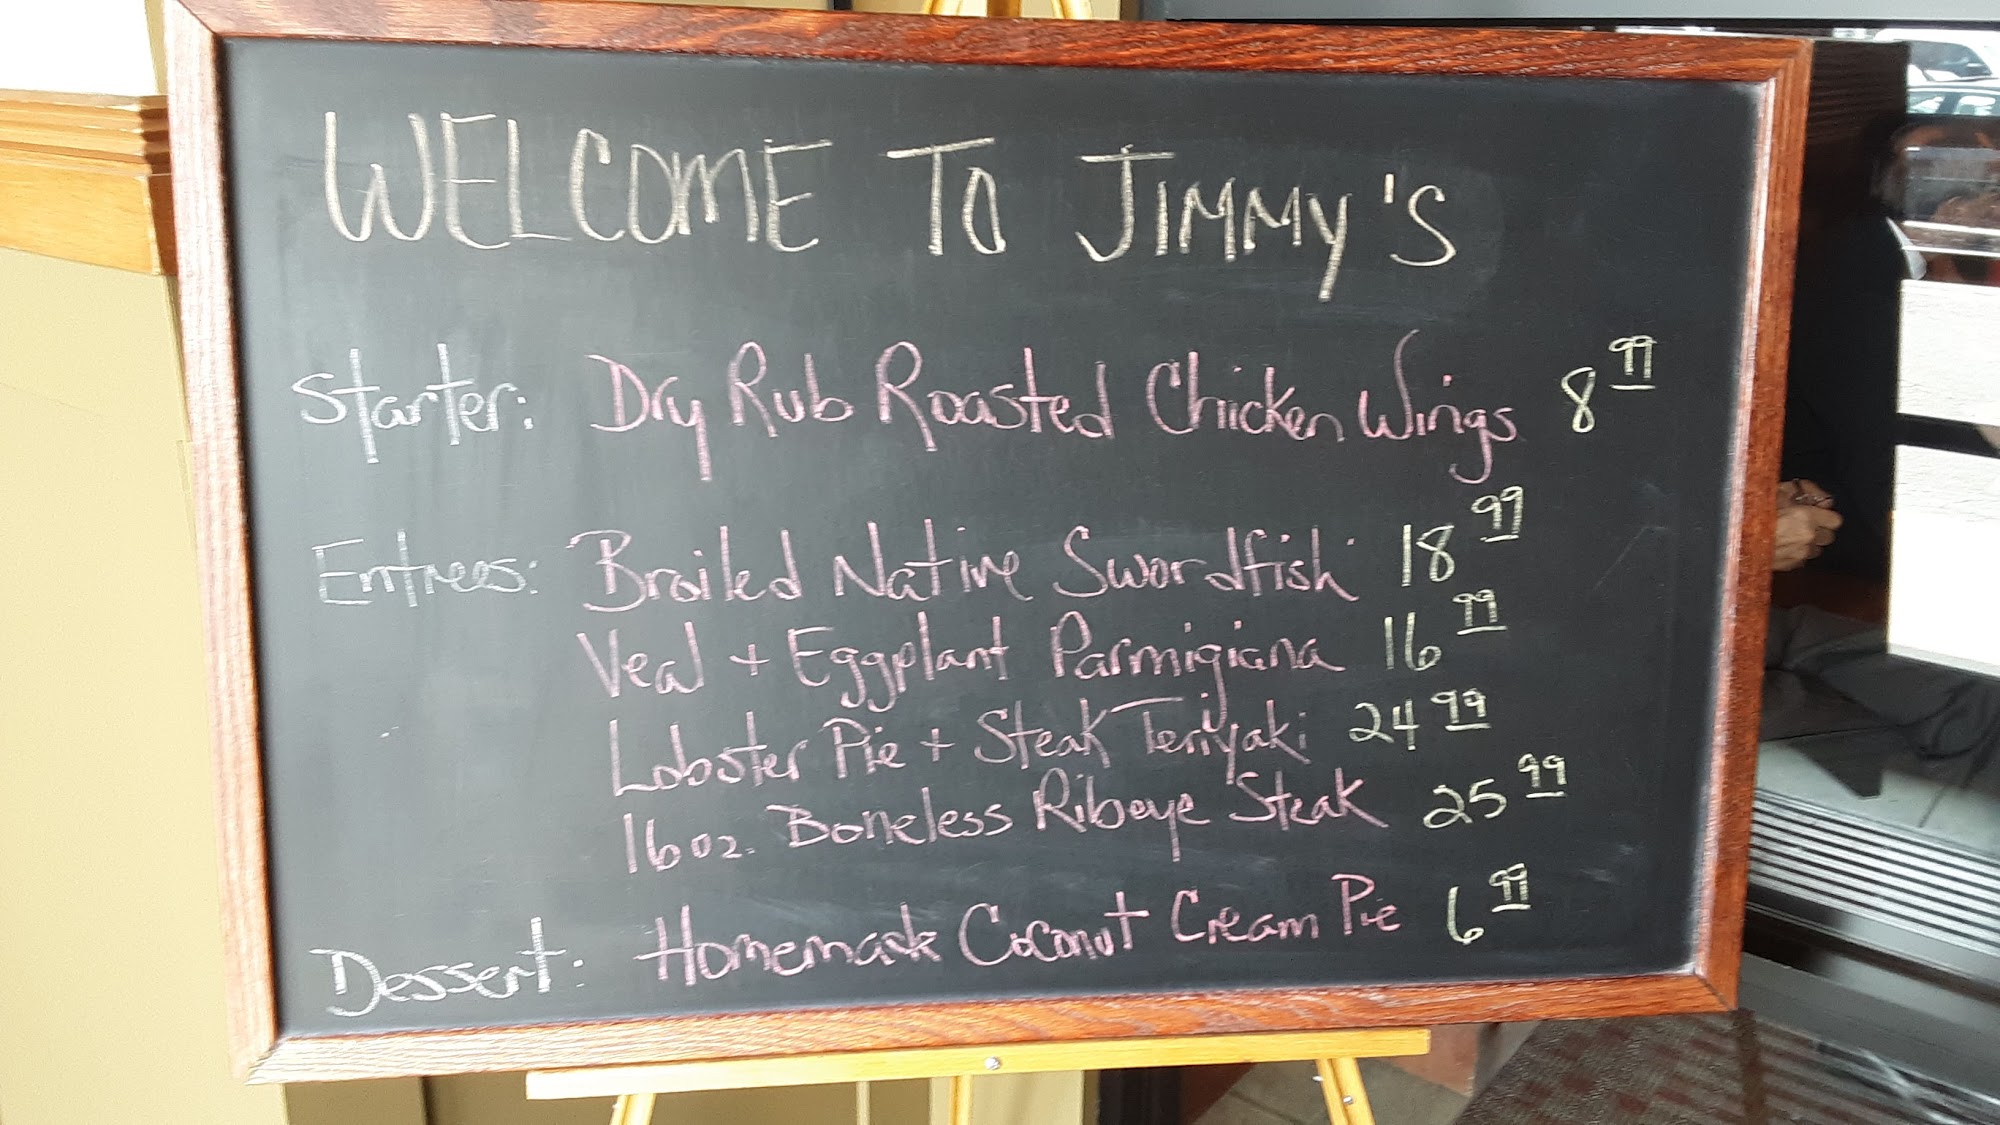 WELCOME TO JIMMY'S
Starter: Dry Rub Roasted Chicken Wings 8 99
Entrees: Broiled Native Swordfish 18 99
Veal + Eggplant Parmigiana 16 99
Lobster Pie + Steak Teriyaki 24 99
16 oz. Boneless Ribeye Steak 25 99
Dessert: Homemade Coconut Cream Pie 6 99